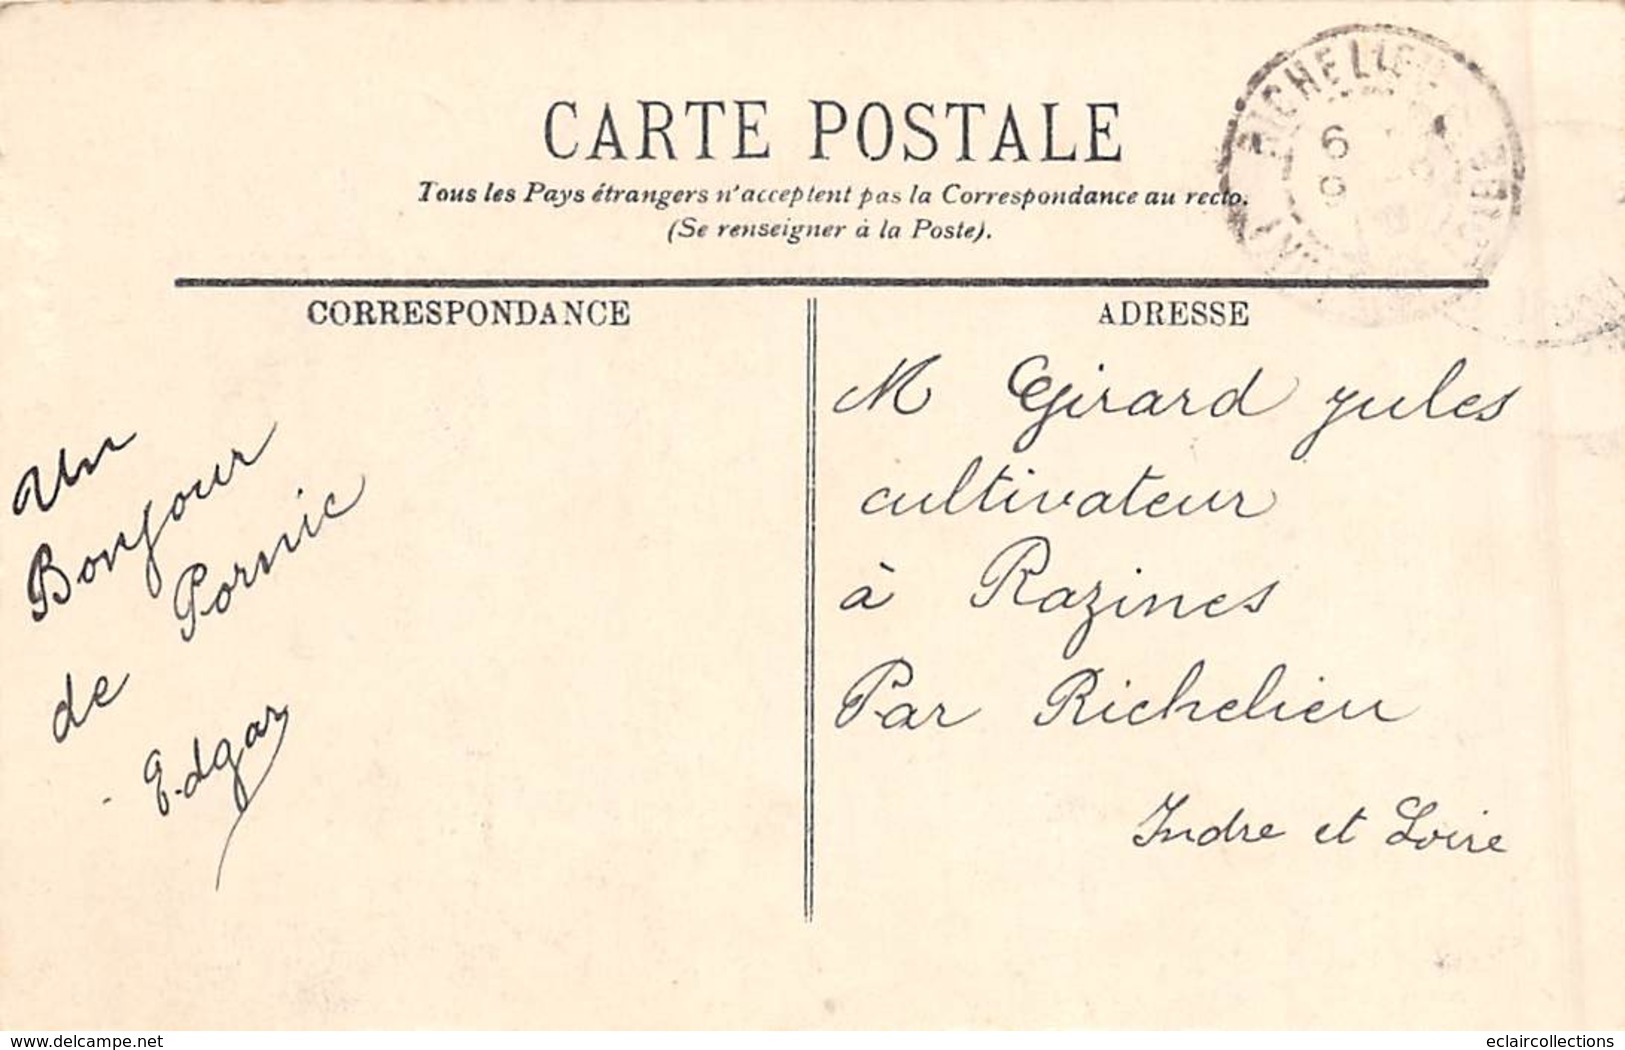 CARTE POSTALE
Tous les Pays étrangers n'acceptent pas la Correspondance au recto.
(Se renseigner à la Poste).
RICHELIEU
6
9
CORRESPONDANCE
ADRESSE
Un
Bonjour
de Pornic
Edgar
M Girard jules
cultivateur
à Razines
Par Richelieu
Indre et Loire
www.delcampe.net
eclaircollections